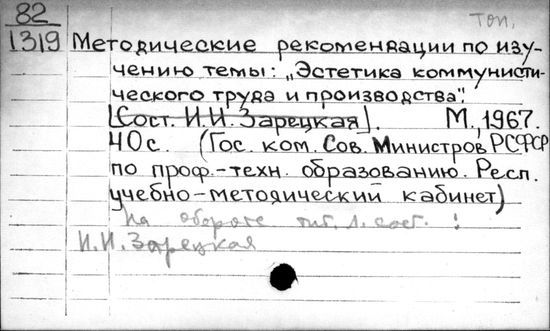 82
1319
Топ.
Методические рекомендации по изу-
чению темы: „Эстетика коммунисти-
ческого труда и производства".
[Сост. И.И. Зарецкая]. М., 1967.
40с. (Гос. ком. Сов. Министров РСФСР
по проф.-техн. образованию. Респ.
учебно-методический кабинет)
На обороте тит. л. сост. :
И.И. Зарецкая